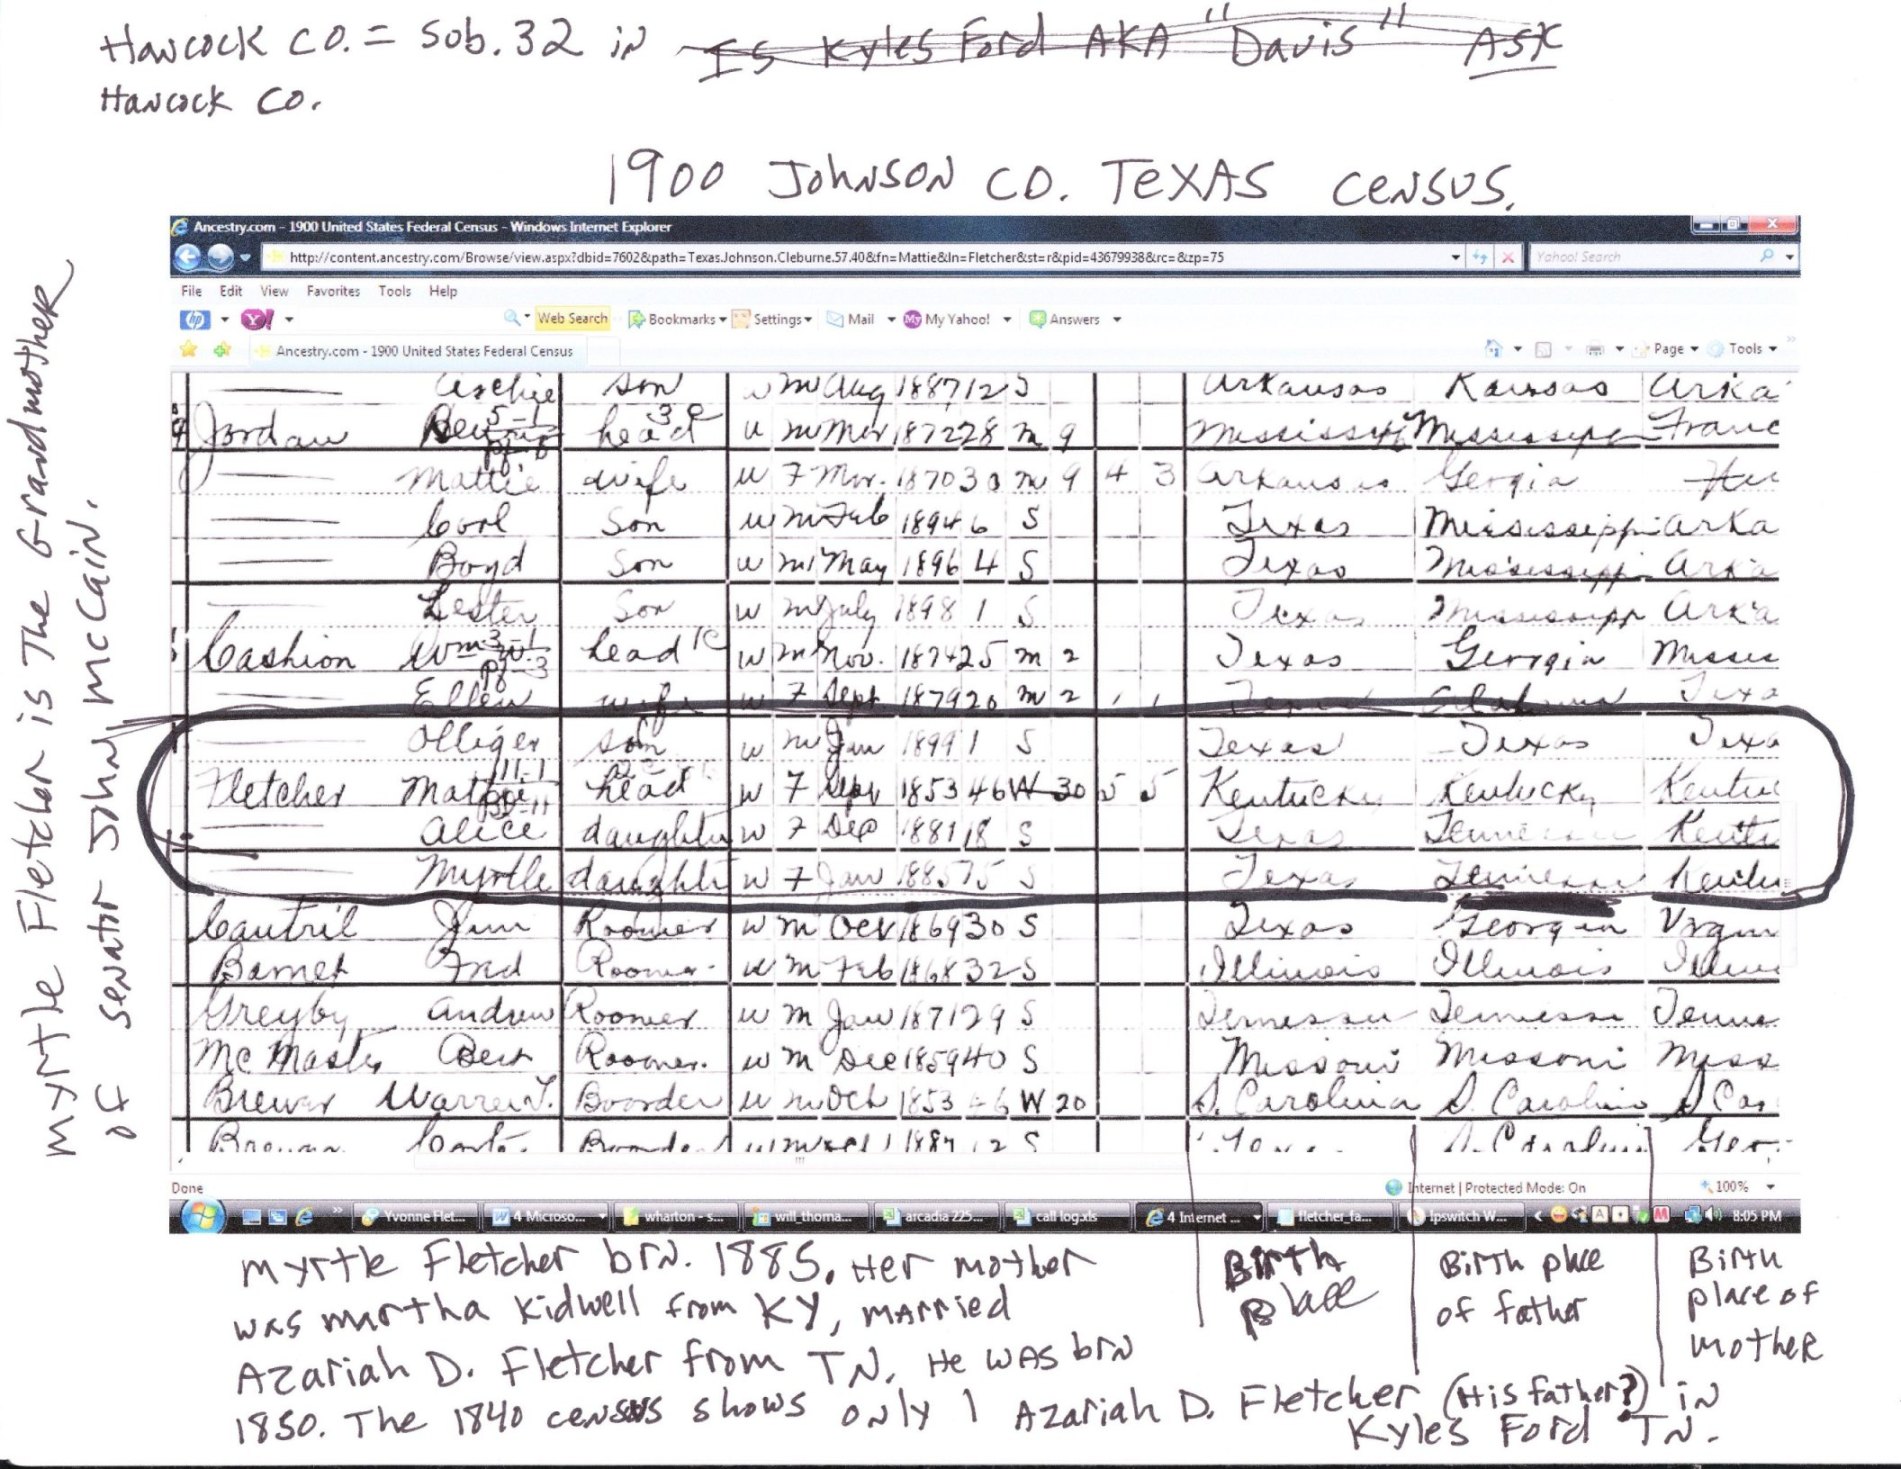 Hancock CO. = Sob. 32 in Is Kyles Ford AKA "Davis" ASK
Hancock CO.
1900 Johnson CO. TEXAS CENSUS.
Myrtle Fletcher is The Grandmother
of senator John McCain.
Ancestry.com - 1900 United States Federal Census - Windows Internet Explorer
http://content.ancestry.com/Browse/view.aspx?dbid=7602&path=Texas.Johnson.Cleburne.57.40&fn=Mattie&ln=Fletcher&st=r&pid=43679938&rc=&zp=75 Yahoo! Search
File Edit View Favorites Tools Help
Web Search Bookmarks Settings Mail My Yahoo! Answers
Ancestry.com - 1900 United States Federal Census Page Tools
Archie son w m Aug 1887 12 S Arkansas Kansas Arka
Jordan head m Mar 1872 28 m 9 Mississippi Mississippi Franc
Mattie wife w F Mar. 1870 30 m 9 4 3 Arkansas Georgia
Son w m Feb 1894 6 S Texas Mississippi Arka
Boyd Son w m May 1896 4 S Texas Mississippi Arka
Lester Son w m July 1898 1 S Texas Mississipp Arka
Cashion Wm head w m Nov. 1874 25 m 2 Texas Georgia Misses
Ellen wife w F Sept 1879 20 m 2 1 1 Alabama Texa
Olliger son w m Jan 1899 1 S Texas Texas Texa
Fletcher Mattie head w F Sep 1853 46 W 30 5 5 Kentucky Kentucky Kentuc
Alice daughter w F Dec 1881 18 S Texas Tennessee Kentu
Myrtle daughter w F Jan 1885 15 S Texas Tennessee Kentu
Cautril Jim Roomer w m Oct 1869 30 S Texas Georgia Virgin
Barnet Fred Roomer w m Feb 1868 32 S Illinois Illinois Illin
Greyby Andrew Roomer w m Jan 1871 29 S Tennessee Tennessee Tenne
McMaster Bert Roomer w m Dec 1859 40 S Missouri Missouri Miss
Brewer Warren T. Boarder w m Oct 1853 46 W 20 S. Carolina S. Carolina S Car
S 
Done Internet | Protected Mode: On 100%
Yvonne Flet... 4 Microso... wharton - s... will_thoma... arcadia 225... call log.xls 4 Internet ... fletcher_fa... Ipswitch W... 8:05 PM
Myrtle Fletcher brn. 1885. Her mother
was martha Kidwell from KY, married
Azariah D. Fletcher from TN. He was brn
1850. The 1840 census shows only 1 Azariah D. Fletcher (His father?) in
Kyles Ford TN.
Birth
place
Birth place
of father
Birth
place of
mother